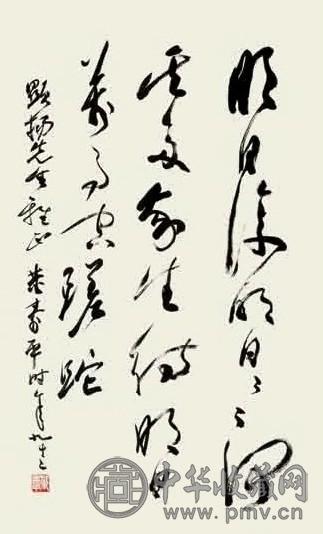 明日復明日〻〻何
其多我生待明日
萬事空蹉跎
顯揚先生雅正 董壽平時年九十
中华收藏网
www.pmv.cn